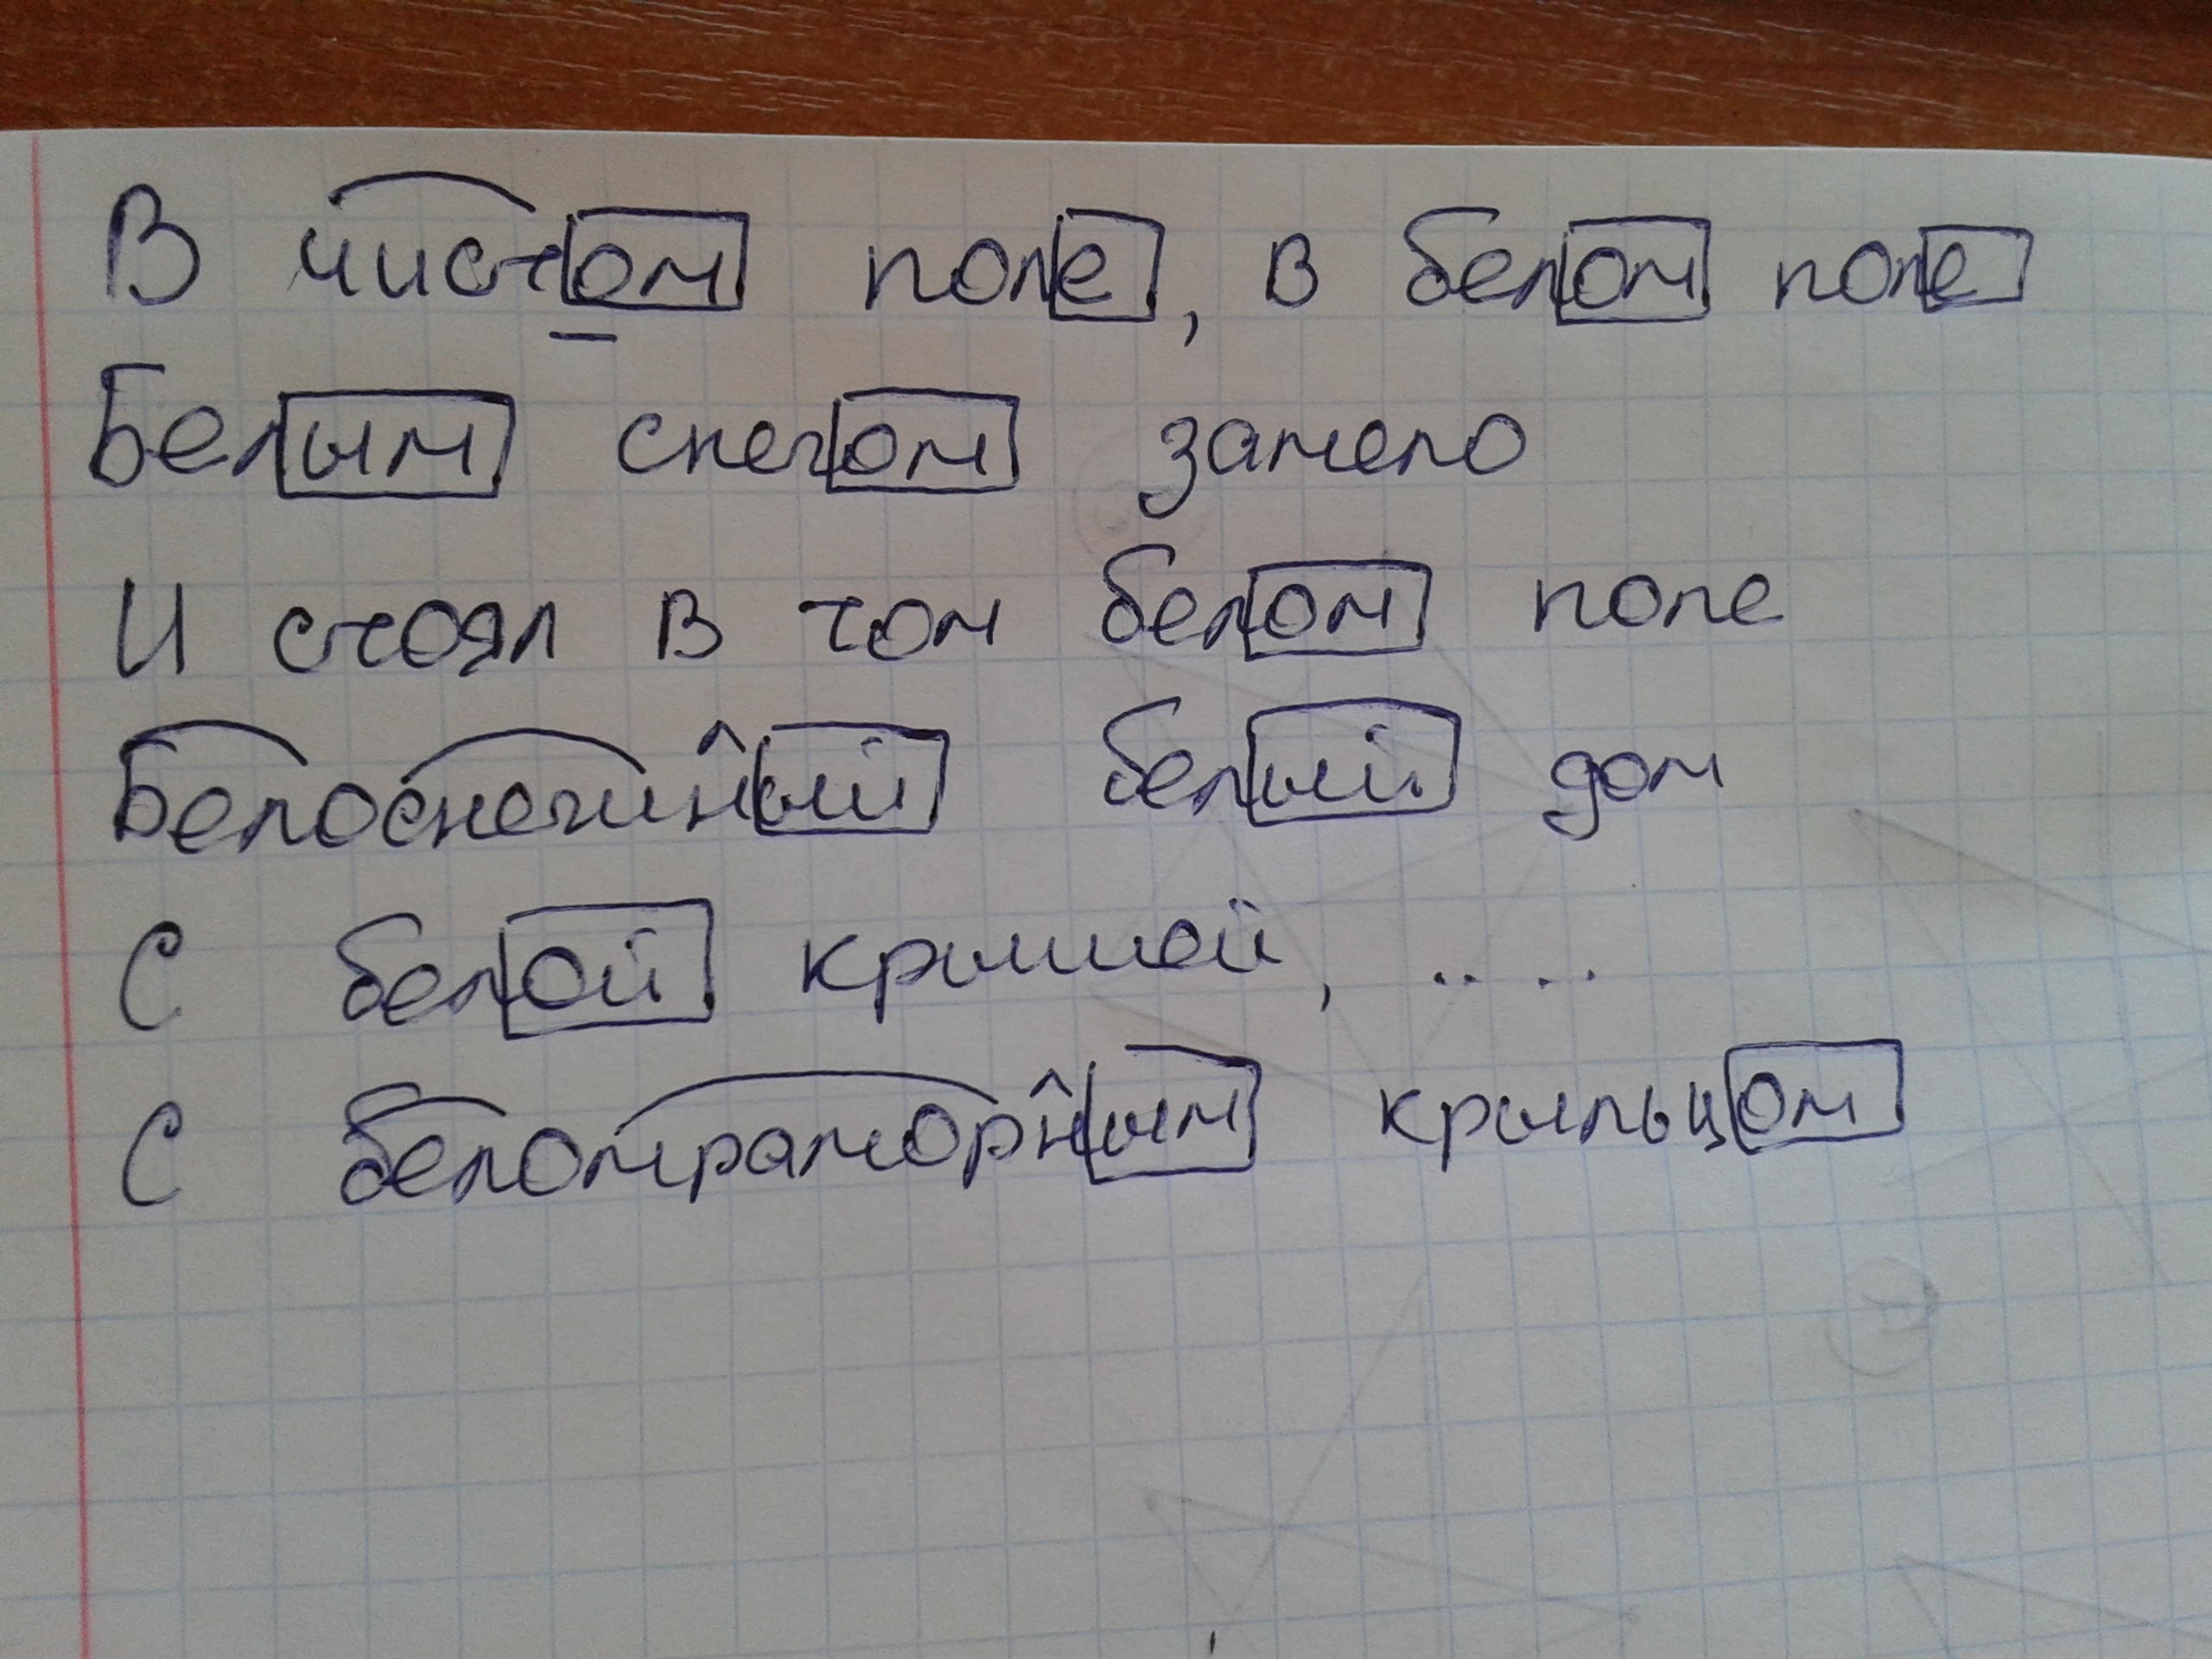 В чистом поле, в белом поле
Белым снегом замело
И стоял в том белом поле
Белоснежный белый дом
С белой крышей, ....
С беломраморным крыльцом